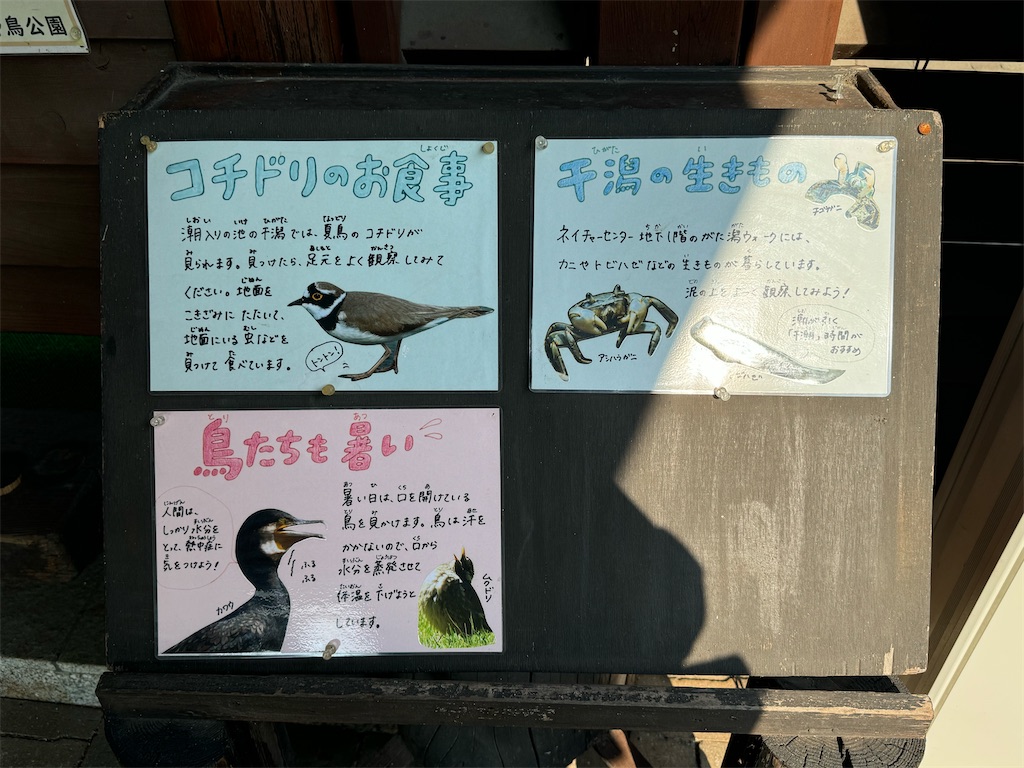 鳥公園
コチドリのお食事
潮入りの池の干潟では、夏鳥のコチドリが
見られます。見つけたら、足元をよく観察してみて
ください。地面を
こきざみにたたいて、
地面にいる虫などを
見つけて食べています。
トントン!
干潟の生きもの
チゴガニ
ネイチャーセンター地下1階のがた潟ウォークには、
カニやトビハゼなどの生きものが暮らしています。
泥の上をよーく観察してみよう!
アシハラガニ
潮が引く
「干潮」時間が
おすすめ
鳥たちも暑い
人間は、
しっかり水分を
とって、熱中症に
気をつけよう!
カワウ
ふる
ふる
暑い日は、口を開けている
鳥を見かけます。鳥は汗を
かかないので、口から
水分を蒸発させて
体温を下げようと
しています。
ムクドリ